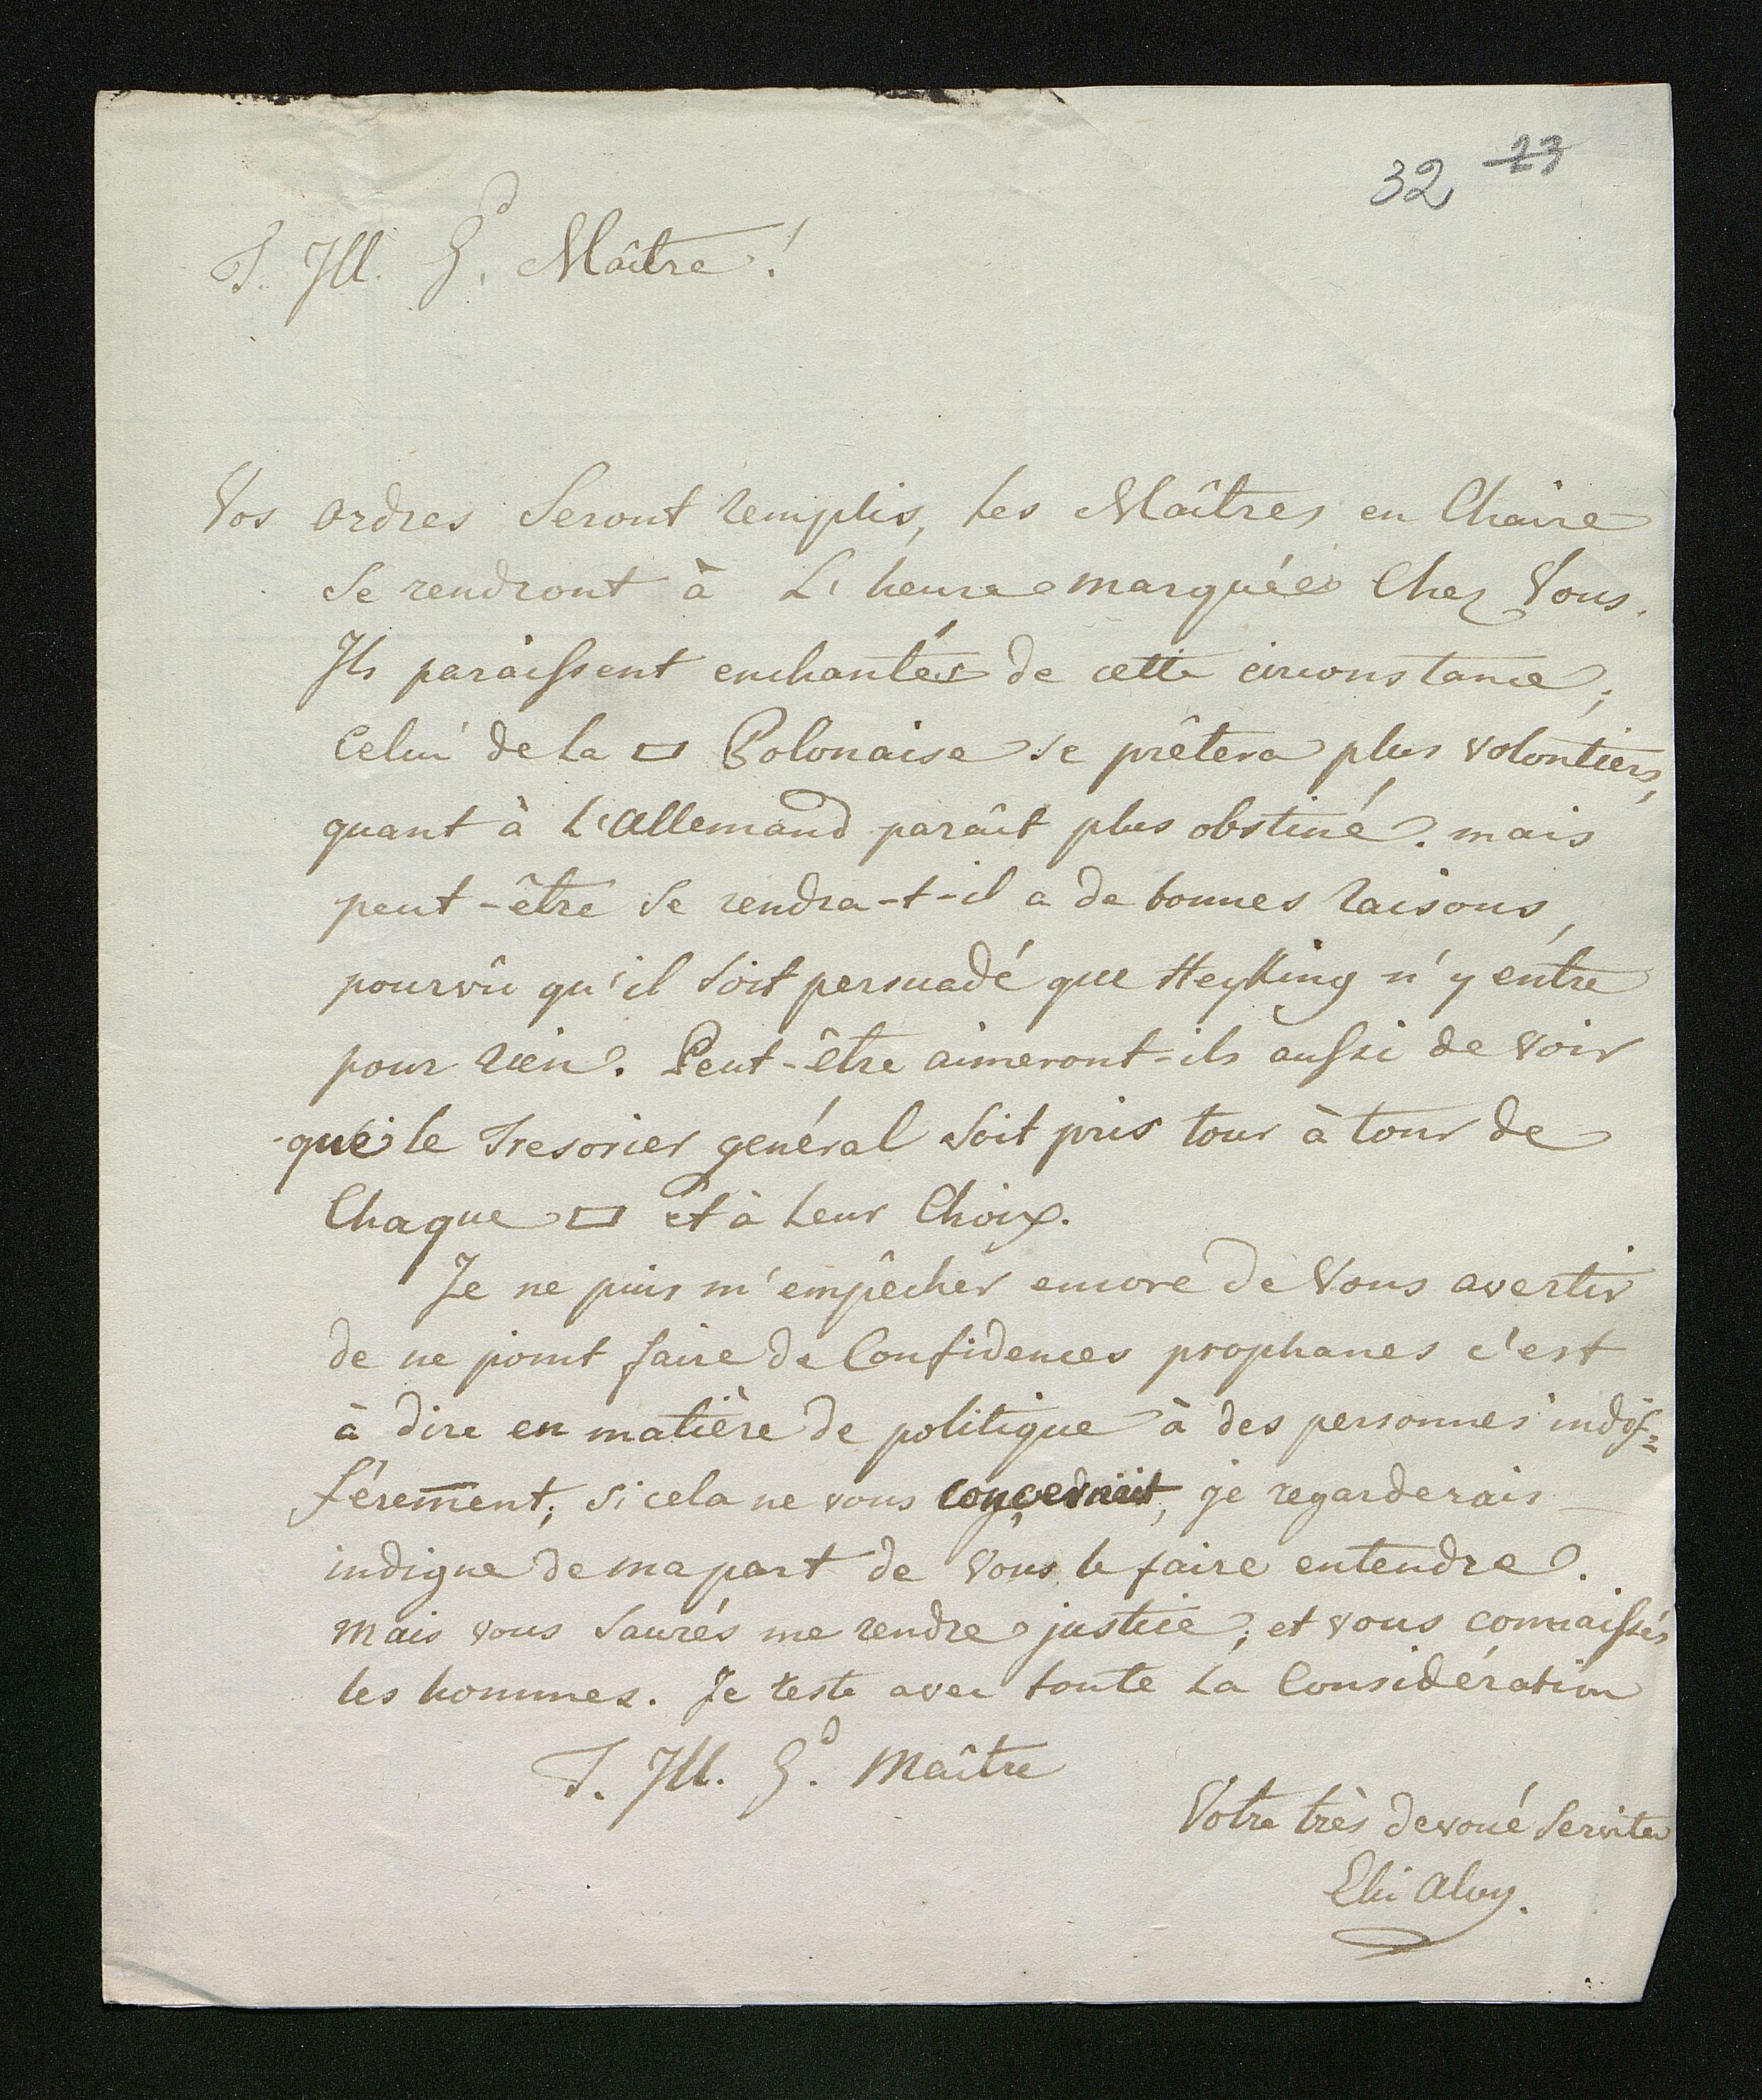 32 23
T. Ill. G.d Maître!
Vos ordres seront remplis, les Maîtres en Chaire
se rendront à L'heure marquée Chez Vous.
Ils paraissent enchantés de cette circonstance;
Celui de la ▭ Polonaise se prêtera plus volontiers,
quant à L'Allemand parâit plus obstiné. mais
peut-être se rendra-t-il a de bonnes raisons,
pourvû qu'il soit persuadé que Heyking n'y entre
pour rien. Peut-être aimeront-ils aussi de voir
que le Tresorier genéral soit pris tour à tour de
Chaque ▭ et à leur Choix.
Je ne puis m'empêcher encore de Vous avertir
de ne point faire de Confidences prophanes c'est
à dire en matière de politique à des personnes indif=
férem̅ent; si cela ne vous concernait, je regarderais
indigne de ma part de Vous le faire entendre.
Mais vous saurés me rendre justice; et vous connaissés
les hommes. Je reste avec toute la Considération
T. Ill. G.d Maître
Votre très devoué Servite